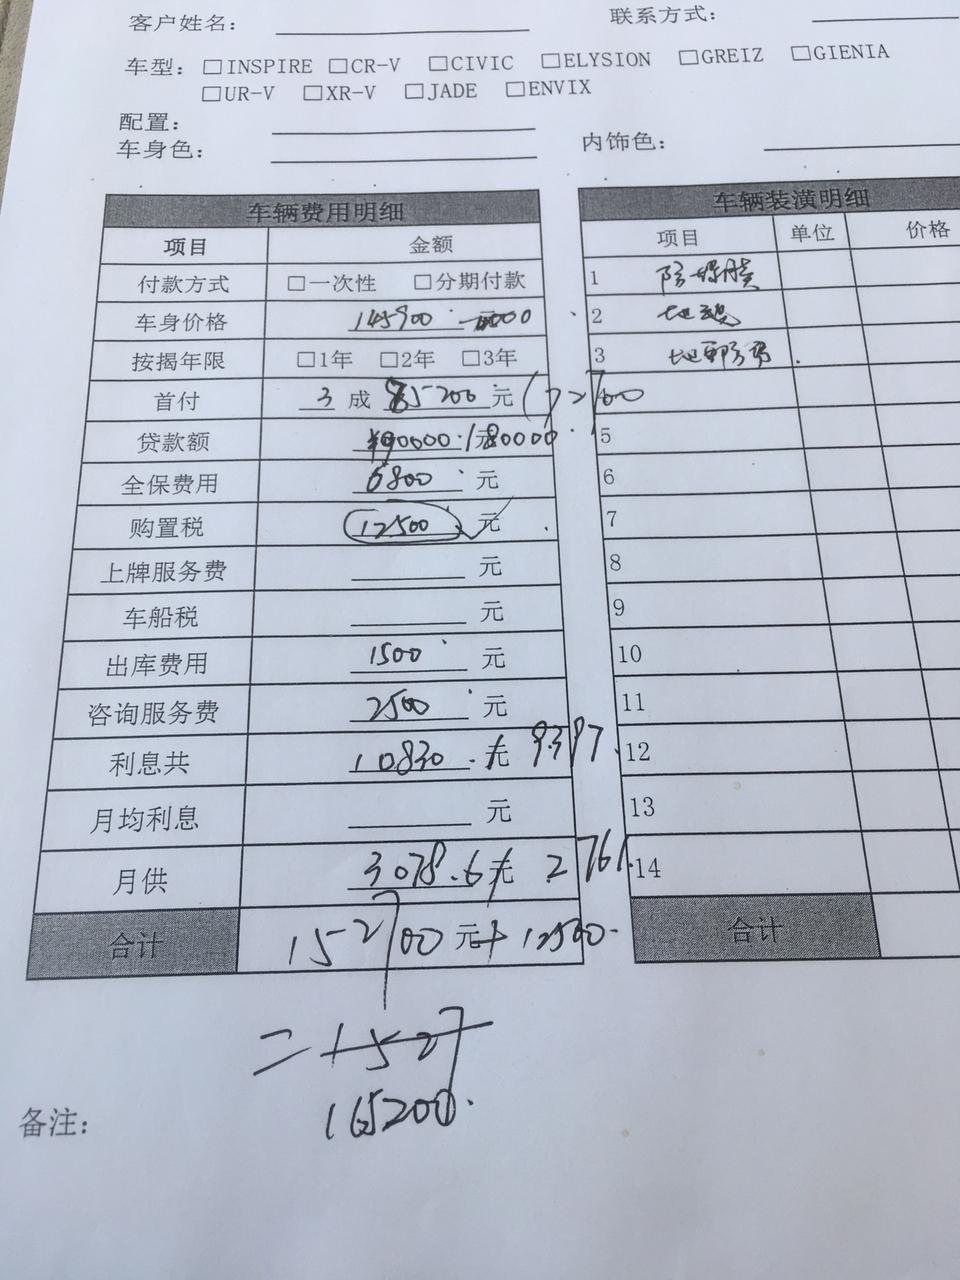 客户姓名: 联系方式:
车型: □INSPIRE □CR-V □CIVIC □ELYSION □GREIZ □GIENIA
□UR-V □XR-V □JADE □ENVIX
配置:
车身色: 内饰色:
车辆费用明细
项目 金额
付款方式 □一次性 □分期付款
车身价格 145900
按揭年限 □1年 □2年 □3年
首付 3 成 85200 元 (72700
贷款额 ¥90000 元 80000
全保费用 6800 元
购置税 12500 元
上牌服务费 元
车船税 元
出库费用 1500 元
咨询服务费 2500 元
利息共 10830 元 9397
月均利息 元
月供 3078.6 元 2761.
合计 152700 元+12500
=1527
165200.
备注:
车辆装潢明细
项目 单位 价格
1 防爆膜
2
3
5
6
7
8
9
10
11
12
13
14
合计